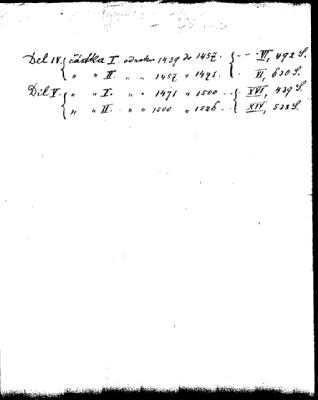 Del IV. { částka I. od roku 1439 do 1457. } - - VI, 492 S.
" " II. " " 1457 " 1471. } VI, 630 S.
Díl V. { " " I. " " 1471 " 1500 .. { XVI, 439 S.
" " II. " " 1500 " 1526 .. { XIV, 588 S.